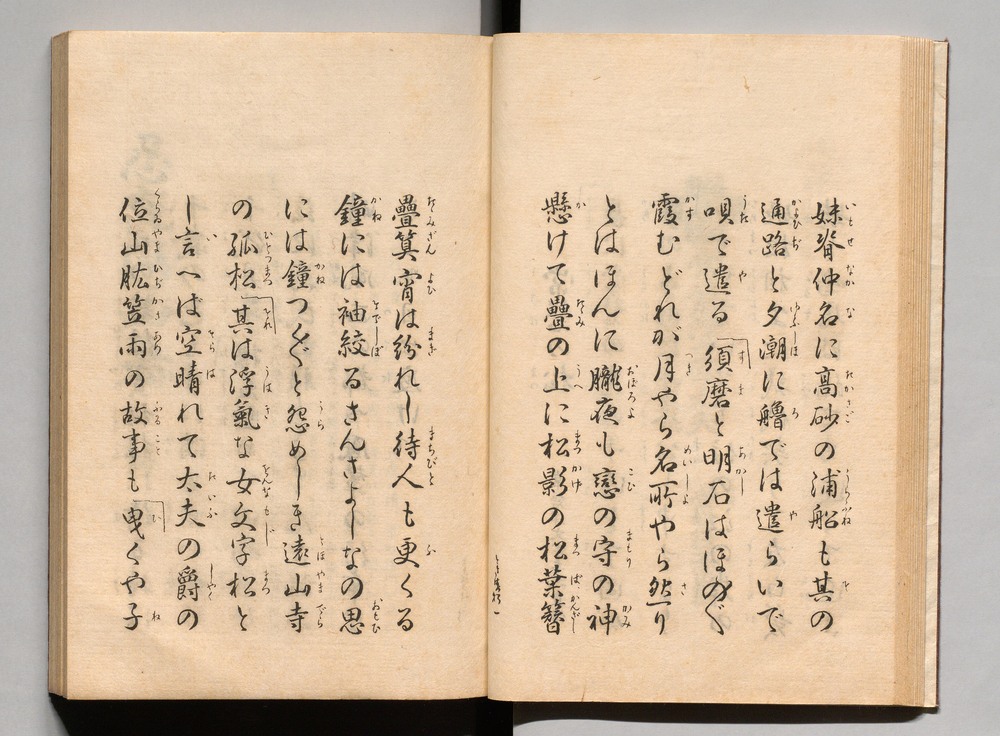 妹脊仲名に高砂の浦船も其の
通路と夕潮に艪では遣らいで
唄で遣る須磨と明石はほのぐ
霞むどれが月やら名所やら然り
とはほんに朧夜も戀の守の神
懸けて疊の上に松影の松葉簪
疊算宵は紛れし待人も更くる
鐘には袖絞るさんさよしなの思
には鐘つくぐと怨めしき遠山寺
の孤松其は浮氣な女文字松と
し言へば空晴れて太夫の爵の
位山肱笠雨の故事も曳くや子